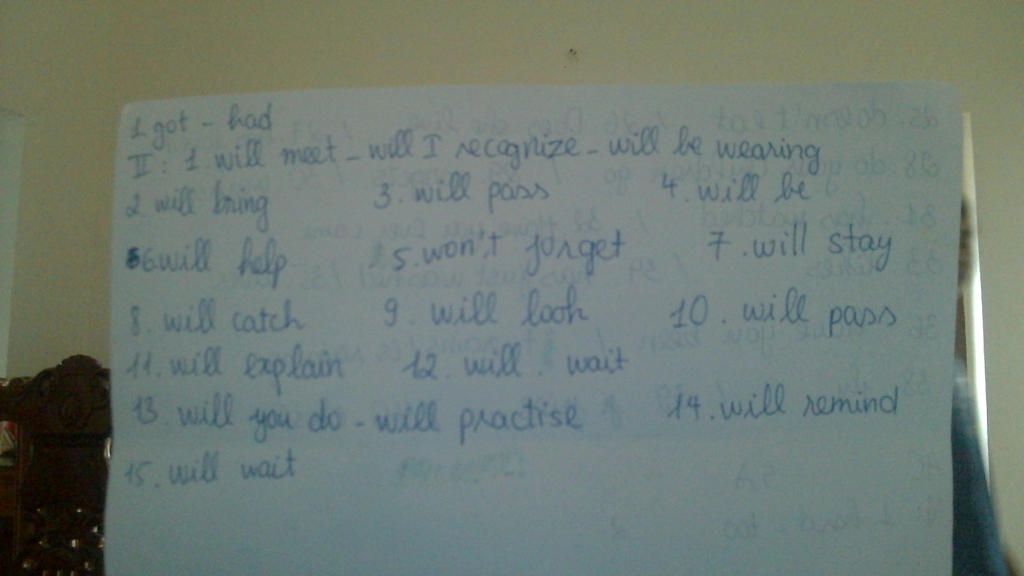 1 got - had
II: 1. will meet - will I recognize - will be wearing
2. will bring 3. will pass 4. will be
6. will help 5. won't forget 7. will stay
8. will catch 9. will look 10. will pass
11. will explain 12. will. wait
13. will you do - will practise 14. will remind
15. will wait